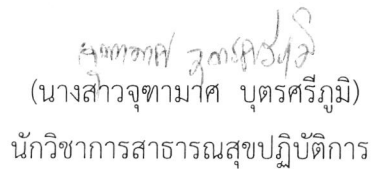 (นางสาวจุฑามาศ บุตรศรีภูมิ)
นักวิชาการสาธารณสุขปฏิบัติการ